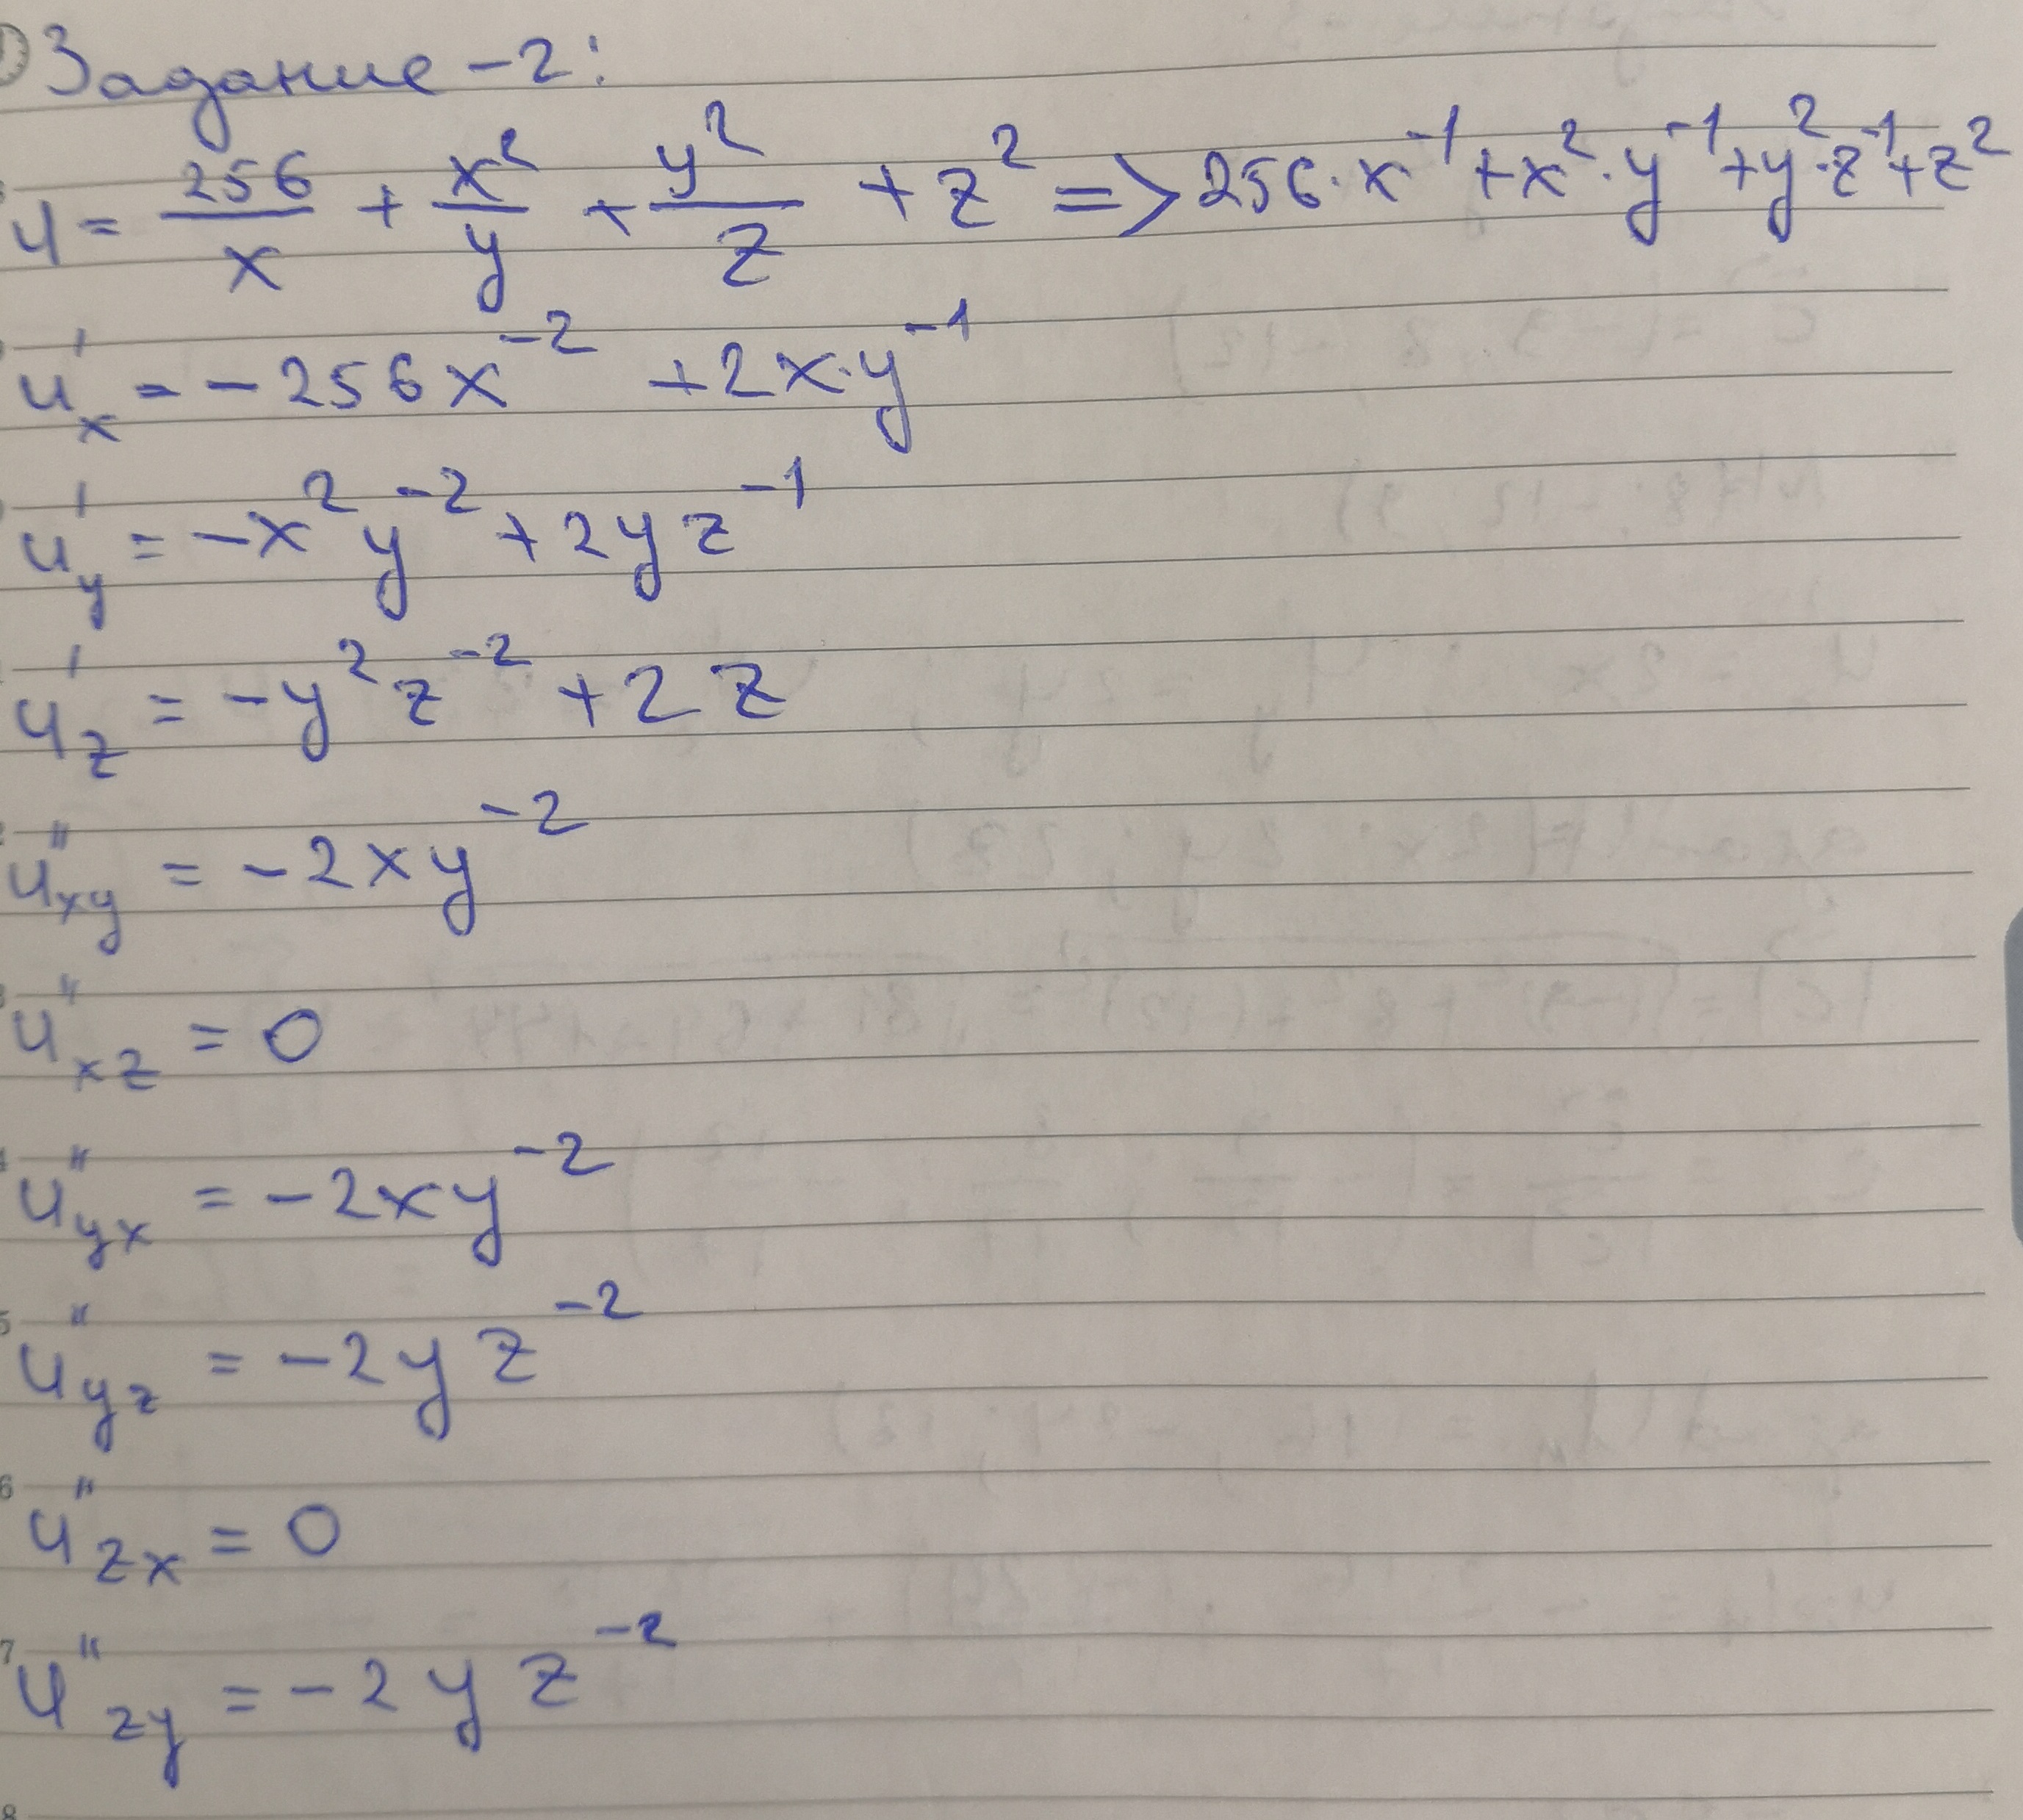 Задание-2:
u = 256/x + x²/y + y²/z + z² => 256·x⁻¹+x²·y⁻¹+y²·z⁻¹+z²
u'x = -256x⁻² +2x·y⁻¹
u'y = -x²y⁻²+2yz⁻¹
u'z = -y²z⁻²+2z
u"xy = -2xy⁻²
u"xz = 0
u"yx = -2xy⁻²
u"yz = -2yz⁻²
u"zx = 0
u"zy = -2yz⁻²